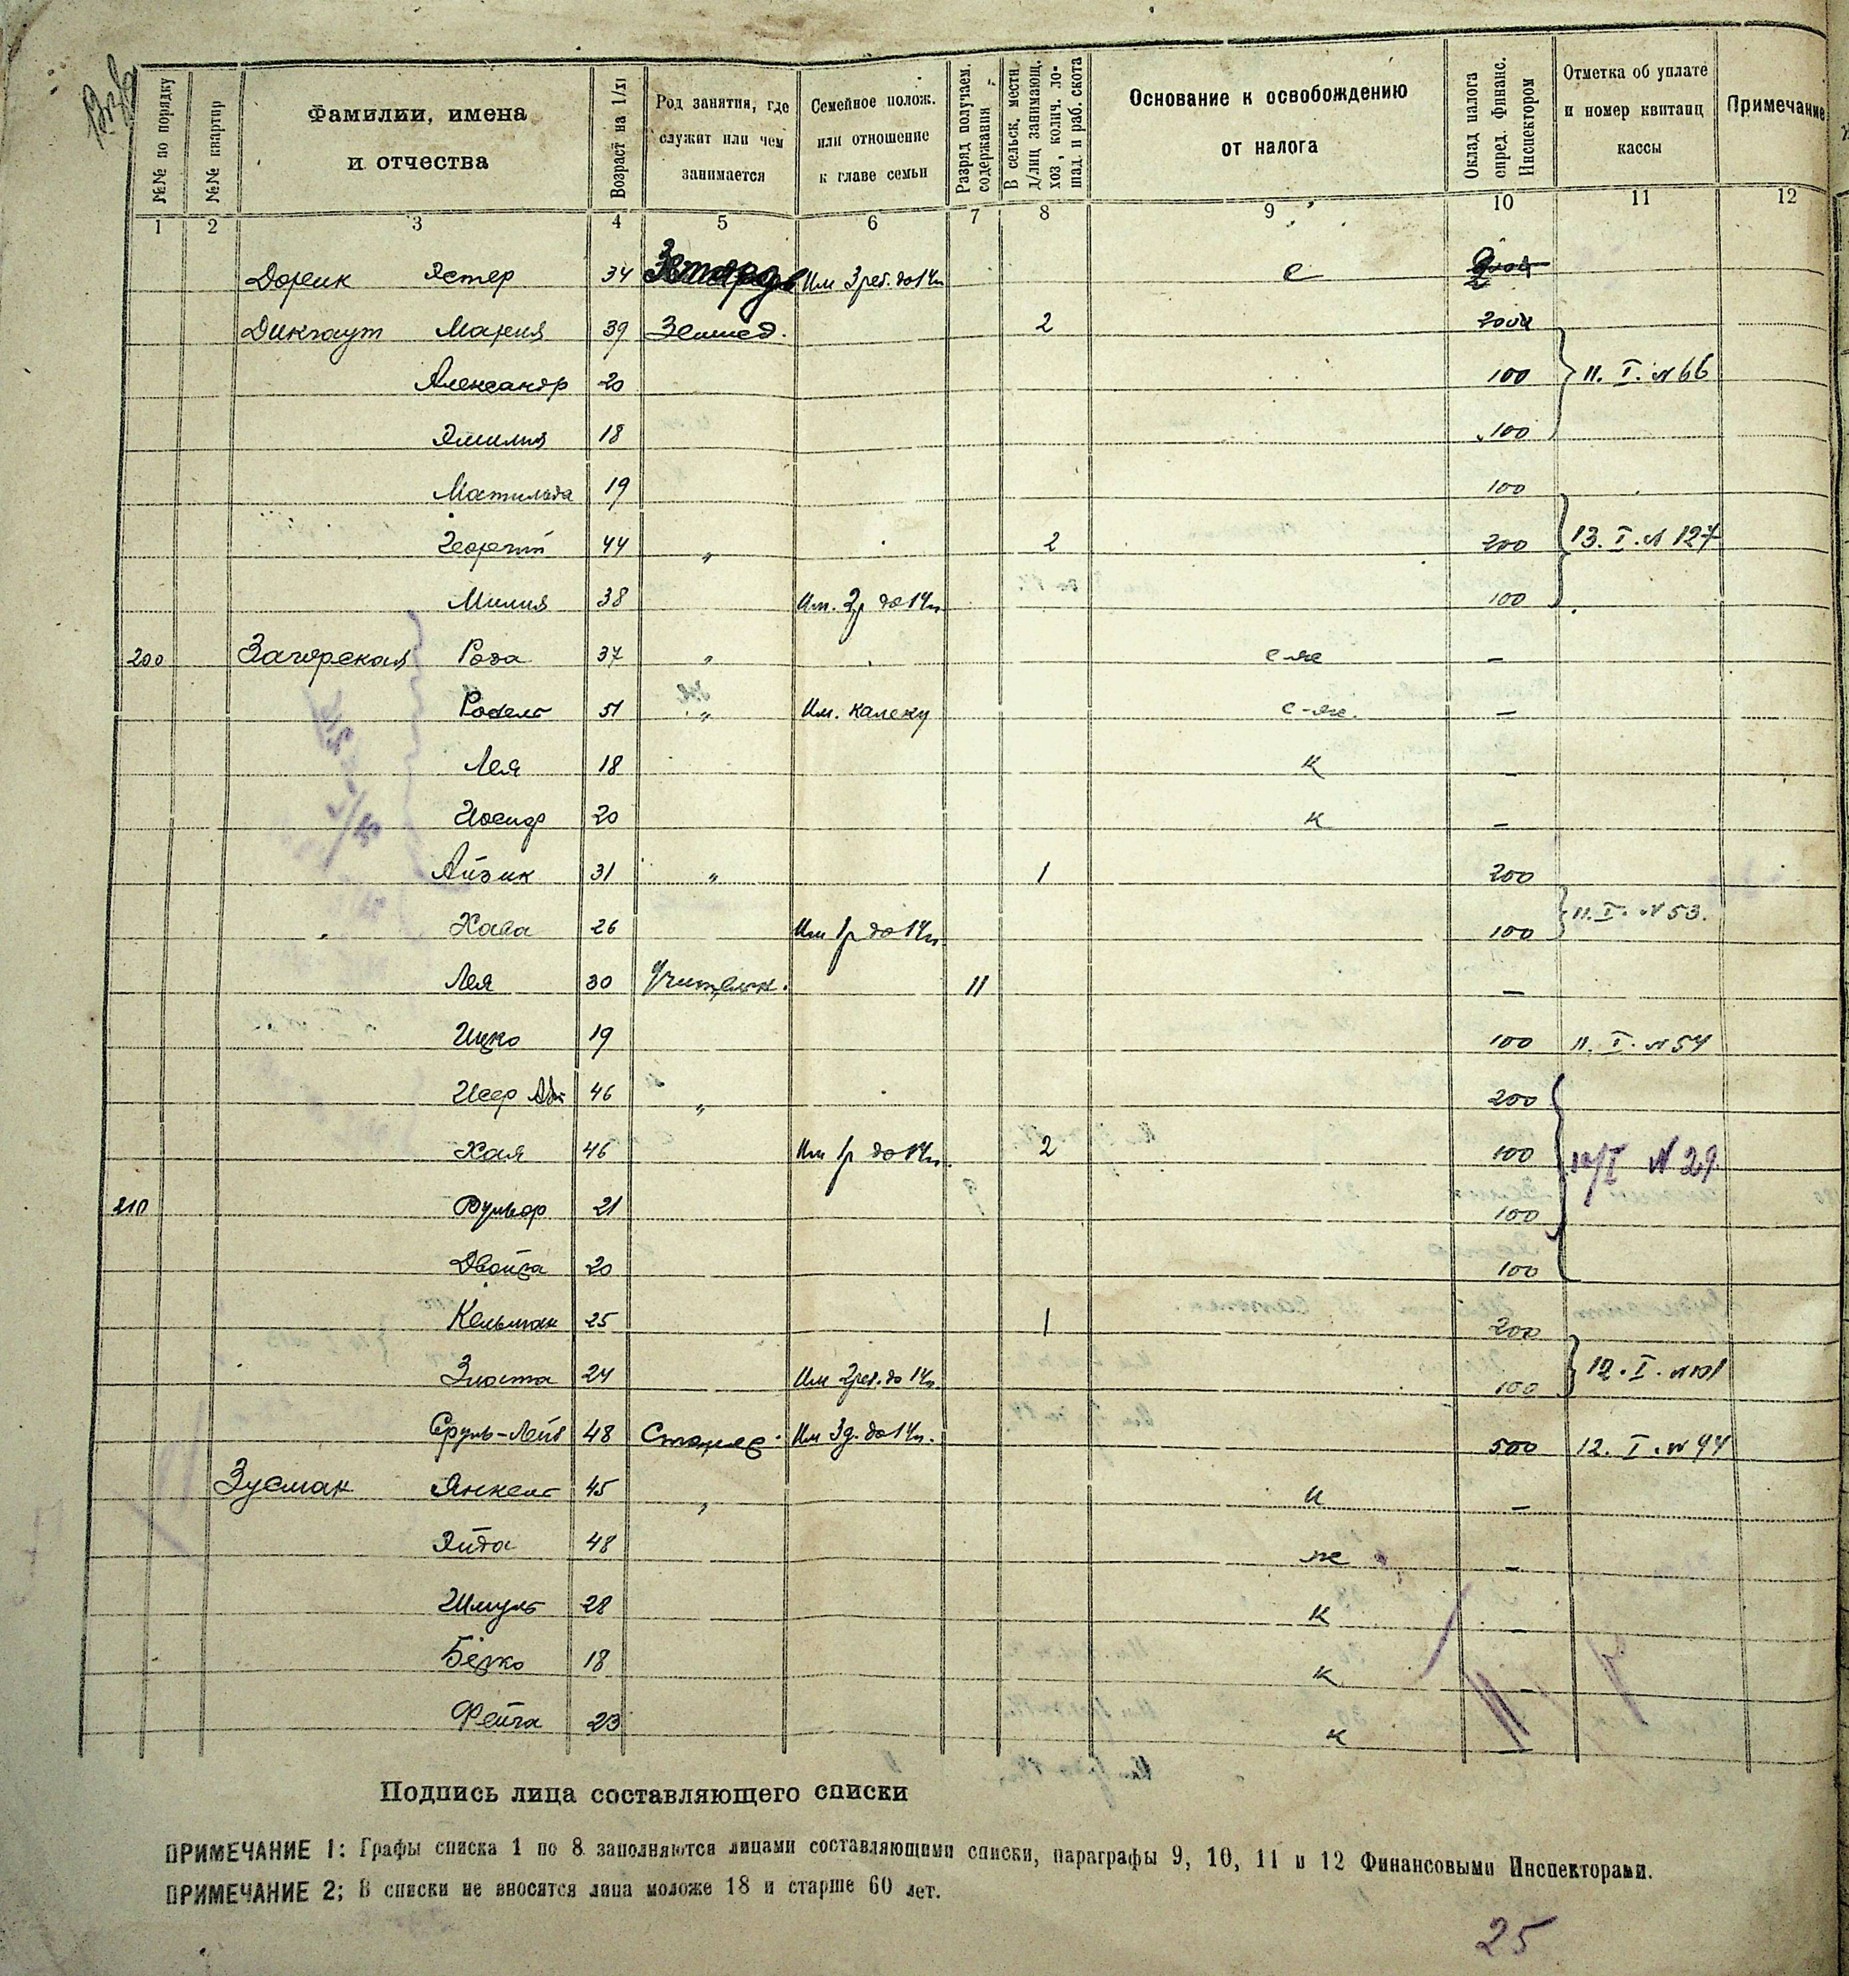 №№ по порядку | №№ квартир | Фамилии, имена и отчества | Возраст на 1/XI | Род занятия, где служит или чем занимается | Семейное полож. или отношение к главе семьи | Разряд получаем. содержания | В сельск. местн. д/лиц занимающ. хоз, колич. лошад. и раб. скота | Основание к освобождению от налога | Оклад налога опред. финанс. Инспектором | Отметка об уплате и номер квитанц кассы | Примечание
1 2 3 4 5 6 7 8 9 10 11 12
Дорик Эстер 34 Им 3 реб. до 14 л е
Дикгаут Мария 39 Землед. 2 200
Александр 20 100 11. I. N 66
Эмилия 18 100
Матильда 19 100
Георгий 44 „ 2 200 13. I. N 127
Милия 38 Им. 2р до 14 л 100
200 Загорская Роза 37 „ е-же —
Рохель 51 „ Им. калеку е-же. —
Лея 18 К —
Иосиф 20 К —
Айзик 31 „ 1 200
Хава 26 Им 1р до 14 л. 100 11. I. N 53.
Лея 30 Учительн. 11 —
Ицко 19 100 11. I. N 54
Исер 46 „ 200
Хая 46 Им 1р до 14 л. 2 100 N 29
210 Вульф 21 100
Двойра 20 100
Кельман 25 1 200
Злота 24 Им 2 реб. до 14 л. 100 12. I. N 101
Сруль-Лейб 48 Столяр. Им 3 д. до 14 л. 500 12. I. N 94
Зусман Янкель 45 „ и —
Эйда 48 же —
Шмуль 28 К —
Берко 18 К —
Фейга 23 К —
Подпись лица составляющего списки
ПРИМЕЧАНИЕ 1: Графы списка 1 по 8 заполняются лицами составляющими списки, параграфы 9, 10, 11 и 12 Финансовыми Инспекторами.
ПРИМЕЧАНИЕ 2; В списки не вносятся лица моложе 18 и старше 60 лет.
25